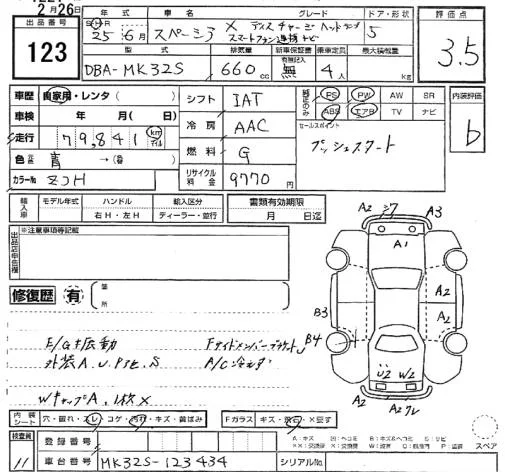 2月26日
出品番号
123
年式 車名 グレード ドア・形状
25年6月 スペーシア X ディスチャージヘッドランプ 5
スマートフォン連携ナビ
評価点
3.5
型式 排気量 新車保証書 乗車定員 最大積載量
DBA-MK32S 660cc 無 4人 kg
車歴 自家用・レンタ( )
車検 年 月( 日)
走行 79,841 km マイル
色 青 →( )
カラーNo ZJH
シフト IAT
冷房 AAC
燃料 G
リサイクル料金 9770円
純正のみ PS PW AW SR
ABS エアB TV ナビ
セールスポイント
プッシュスタート
内装評価
b
輸入車 モデル年式 ハンドル 輸入区分
右H・左H ディーラー・並行
書類有効期限
月 日迄
出品店申告欄 ※注意事項等記載
修復歴 有 箇所
E/G振動 Fサイドメンバーブラケット
外装A.U.Pヨビ.S A/C冷えず
WキャップA、1枚X
A2 シワ A3
A1
A2
B3 A2
B4
U2 W2
A2 A2 クレ
内装シート 穴・破れ・スレ・コゲ・汚れ・キズ・黄ばみ
Fガラス キズ・飛石・X要す
検査員 11
登録番号
車台番号 MK32S-123434
シリアルNo.
スペア